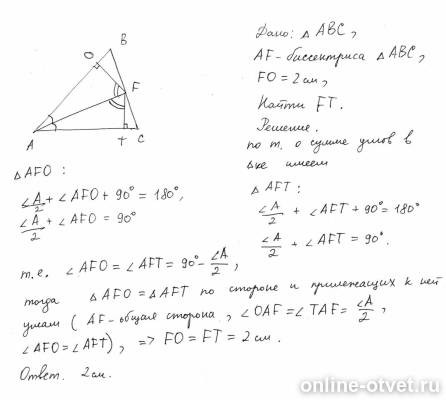 B
O
F
A
T
C
Дано: △ABC,
AF-биссектриса △ABC,
FO = 2 см,
Найти FT.
Решение.
по т. о сумме углов в
△ке имеем
△AFO :
∠A/2 + ∠AFO + 90° = 180°,
∠A/2 + ∠AFO = 90°
△AFT :
∠A/2 + ∠AFT + 90° = 180°
∠A/2 + ∠AFT = 90°.
т.е. ∠AFO = ∠AFT = 90° - ∠A/2,
тогда △AFO = △AFT по стороне и прилежащих к ней
углам ( AF-общая сторона, ∠OAF = ∠TAF = ∠A/2,
∠AFO = ∠AFT), => FO = FT = 2 см.
Ответ. 2 см.
online-otvet.ru